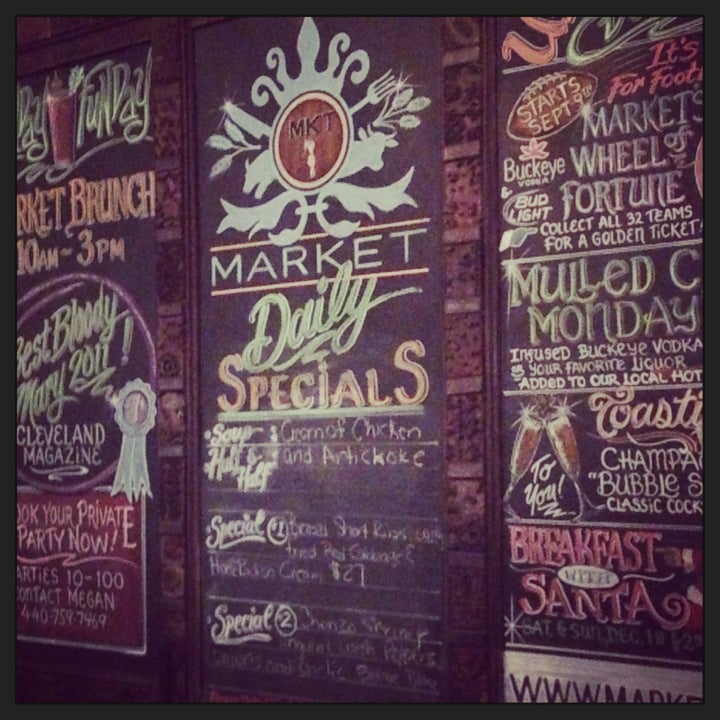 FUNDAY
MARKET BRUNCH
10AM - 3PM
Best Bloody
Mary 2011!
1
CLEVELAND
MAGAZINE
BOOK YOUR PRIVATE
PARTY NOW!
PARTIES 10-100
CONTACT MEGAN
440-759-7469
MKT
MARKET
Daily
SPECIALS
Soup: Cream of Chicken
Half & Half and Artichoke
Special 1 Braised Short Ribs with
fried Red Cabbage &
Cream $27
Special 2 Shrimp
with Peppers
and Garlic
It's
For Foot
STARTS
SEPT 9th
MARKET'S
WHEEL of
FORTUNE
Buckeye
VODKA
&
BUD
LIGHT
COLLECT ALL 32 TEAMS
FOR A GOLDEN TICKET
MULLED C
MONDAY
INFUSED BUCKEYE VODKA
OR YOUR FAVORITE LIQUOR
ADDED TO OUR LOCAL HOT
Toasti
TO
You!
CHAMPA
"BUBBLE S
CLASSIC COCK
BREAKFAST
WITH
SANTA
SAT. & SUN, DEC.
WWW.MARKE